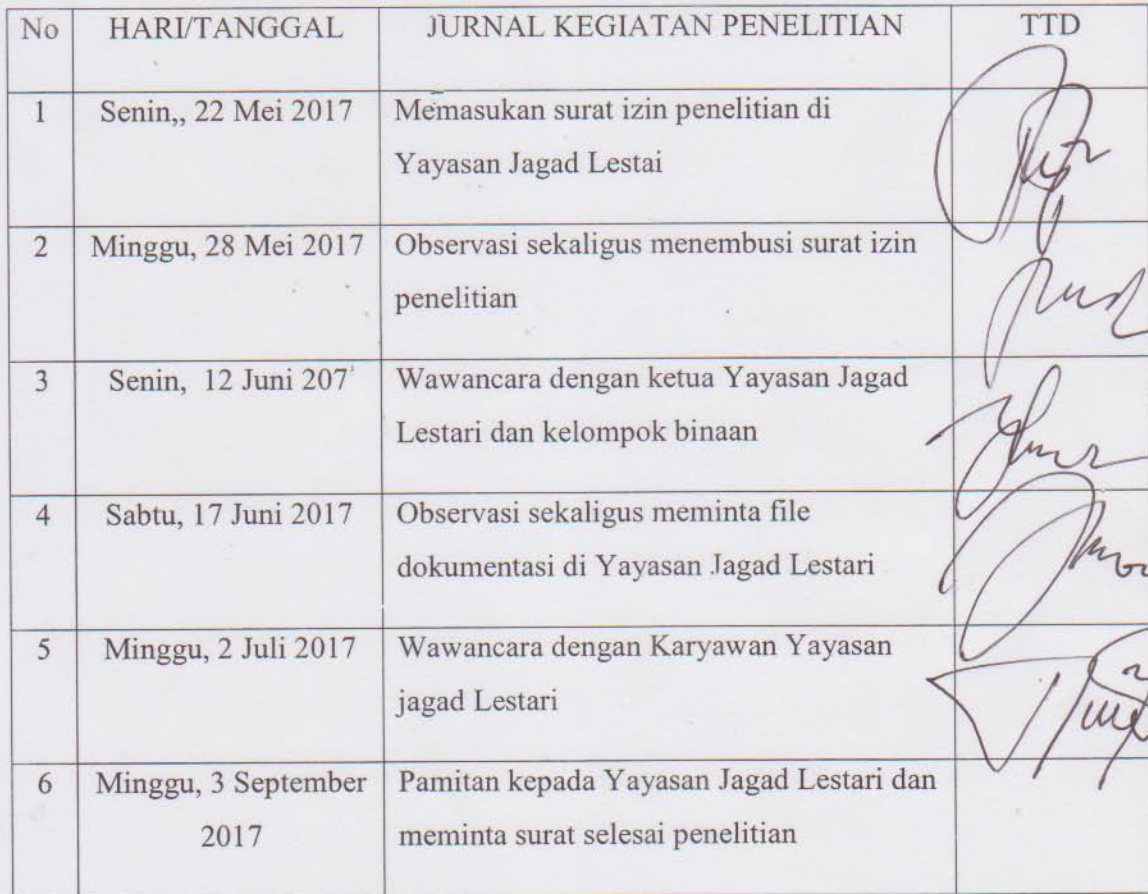 No HARI/TANGGAL JURNAL KEGIATAN PENELITIAN TTD
1 Senin,, 22 Mei 2017 Memasukan surat izin penelitian di
Yayasan Jagad Lestai
2 Minggu, 28 Mei 2017 Observasi sekaligus menembusi surat izin
penelitian
3 Senin, 12 Juni 207 Wawancara dengan ketua Yayasan Jagad
Lestari dan kelompok binaan
4 Sabtu, 17 Juni 2017 Observasi sekaligus meminta file
dokumentasi di Yayasan Jagad Lestari
5 Minggu, 2 Juli 2017 Wawancara dengan Karyawan Yayasan
jagad Lestari
6 Minggu, 3 September Pamitan kepada Yayasan Jagad Lestari dan
2017 meminta surat selesai penelitian